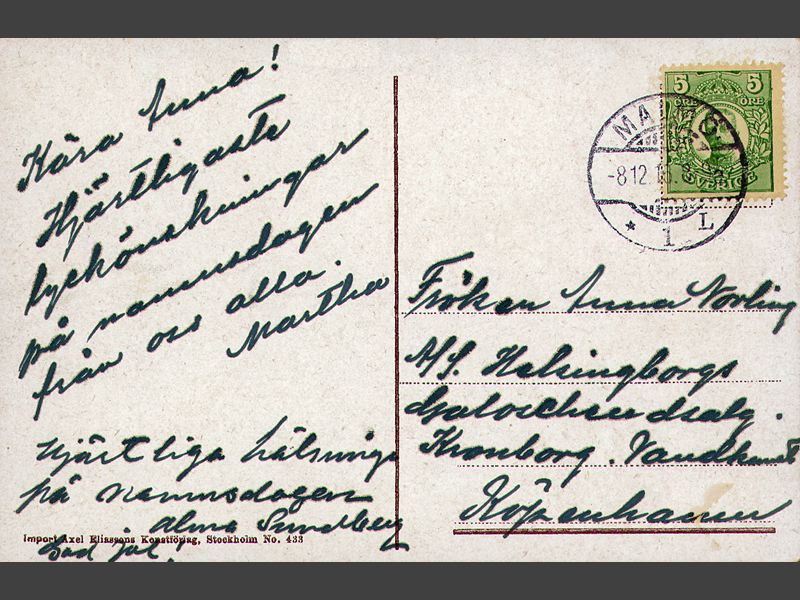 Kära Anna!
Hjärtligaste
lyckönskningar
på namnsdagen
från oss alla.
Martha
Hjärtliga hälsningar
på namnsdagen
Alma Sundberg
God Jul!
Import Axel Eliassons Konstförlag, Stockholm No. 433
5 5
ÖRE ÖRE
SVERIGE
MALMÖ
-8.12.
* 1 L
Fröken Anna Norling
A/S. Helsingborgs
Galoscheudsalg.
Kronborg. Vandkunst
Köpenhamn